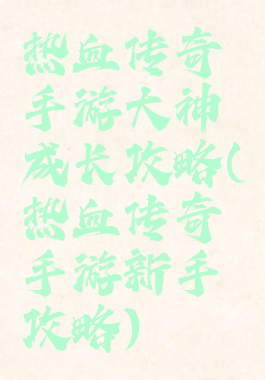 热血传奇
手游大神
成长攻略(
热血传奇
手游新手
攻略)